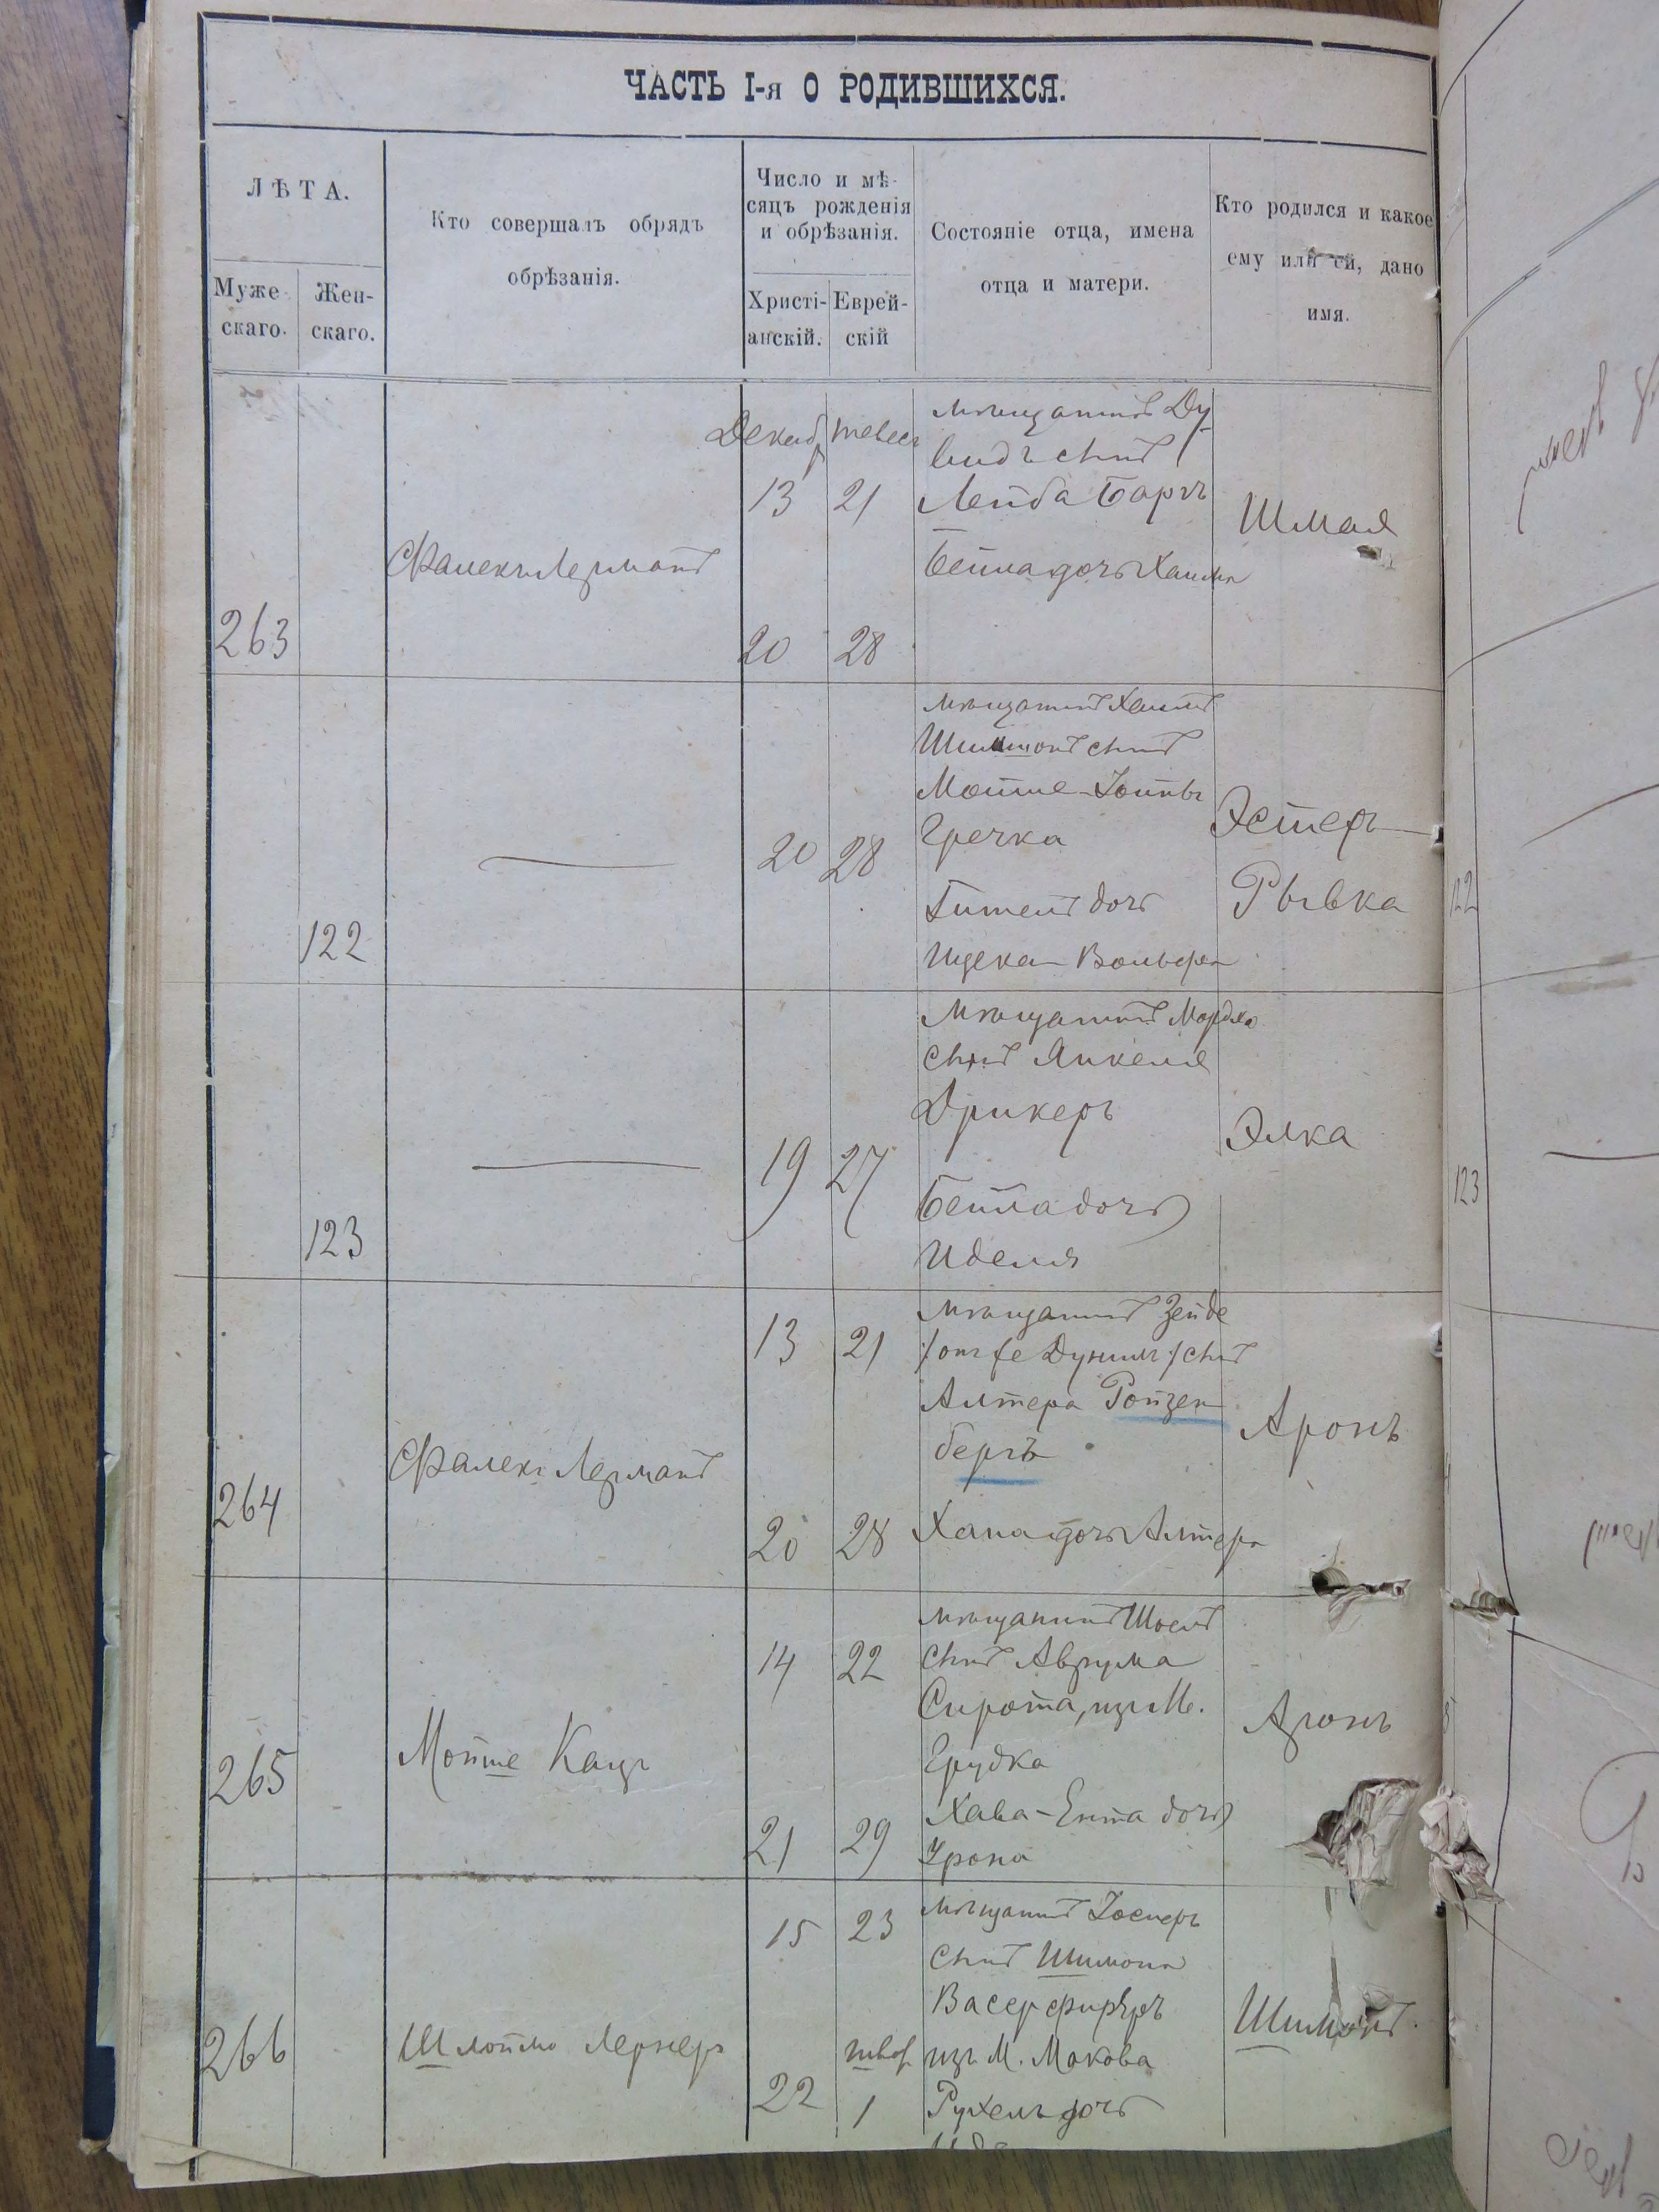 ЧАСТЬ I-я О РОДИВШИХСЯ.
ЛѢТА.
Муже-
скаго.
Жен-
скаго.
Кто совершалъ обрядъ
обрѣзанія.
Число и мѣ-
сяцъ рожденія
и обрѣзанія.
Христі-
анскій.
Еврей-
скій
Состояніе отца, имена
отца и матери.
Кто родился и какое
ему или ей, дано
имя.
263
Фалекъ Лерманъ
Декаб
13
20
21
28
мѣщанинъ Ду-
видъ сынъ
Лейба Баръ
Бейла дочь Хаима
Шмая
122
20
28
мѣщанинъ Хаимъ
Шимшонъ сынъ
Мойше
Гречка
дочь
Вольфа
Эстеръ
Рывка
122
123
19
27
Мѣщанинъ Мордко
сынъ Янкеля
Дрикеръ
Бейла дочь
Иделя
Элка
123
264
Фалекъ Лерманъ
13
20
21
28
Мѣщанинъ Зейде
сынъ
Алтера Ройзен
бергъ
Хана дочь Алтера
Аронъ
265
Мойше Кацъ
14
21
22
29
мѣщанинъ
сынъ Аврума
Сирота, изъ М.
Грудка
Хава-Ента дочь
Аронъ
266
Шлойме Лернеръ
15
22
23
1
мѣщанинъ
сынъ Шимона
изъ М. Макова
Рухель дочь
Шимонъ